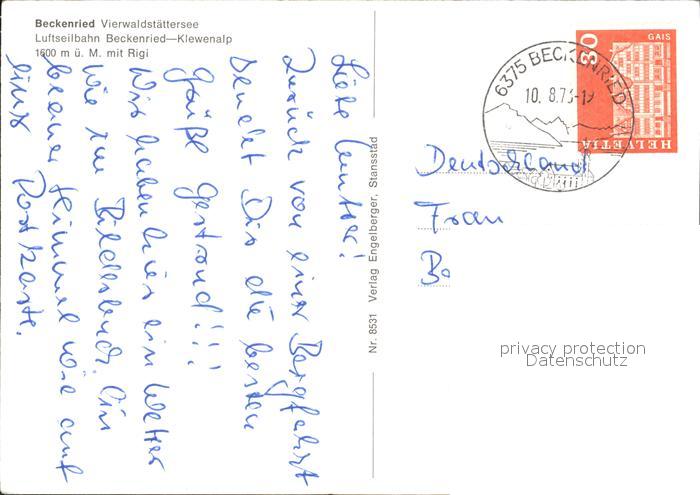 Beckenried Vierwaldstättersee
Luftseilbahn Beckenried—Klewenalp
1600 m ü. M. mit Rigi
Liebe Mutter!
Zurück von einer Bergfahrt
sendet Dir die besten
Grüße Gertraud!!!
Wir haben hier ein Wetter
wie im Bilderbuch. Ein
blauer Himmel wie auf
einer Postkarte.
Nr. 8531 Verlag Engelberger, Stansstad
6375 BECKENRIED
10. 8.73-19
GAIS
80
HELVETIA
Deutschland
Frau
privacy protection
Datenschutz